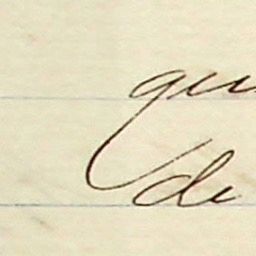 qu
de